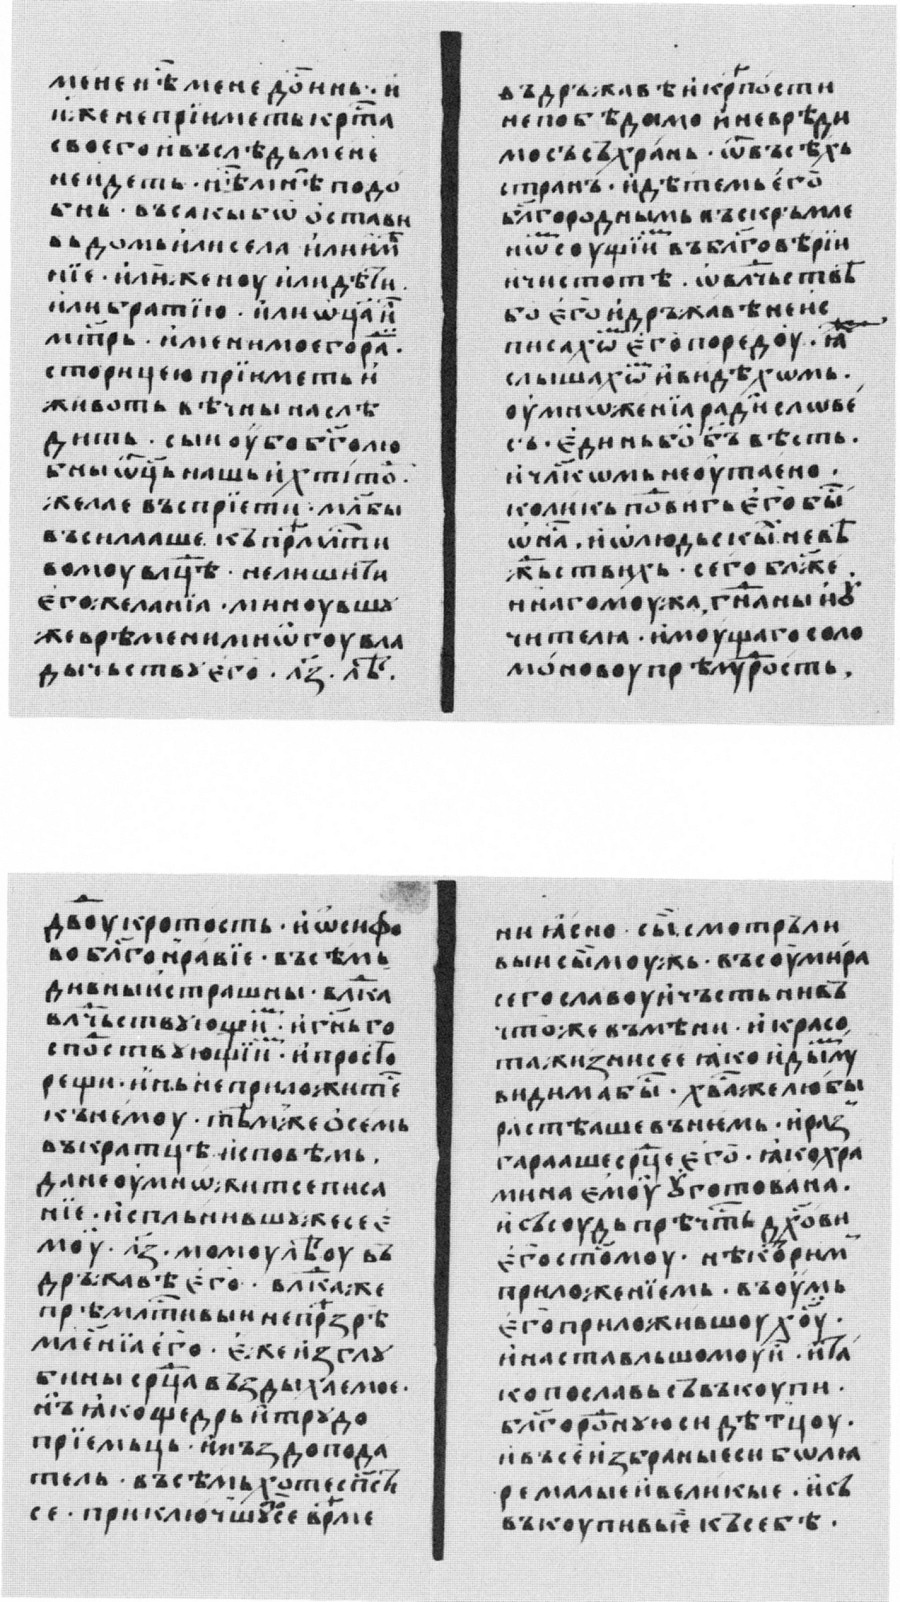 мене нѣ мене дѻинь · и
иже не прїиметь крⷭ҇та
своего и въслѣдь мене
не идеть · нѣ мнѣ подо
бнь · въсакы бѡ ѻставы
вь домь или села · или имⷩ҇
нїе · или женоу или дѣти ·
или братїю · или ѡц҃а и
мт҃рь · имени моего раⷣ ·
сторицею прїиметь и
животь вѣчны наслѣ
дить · сын оубо бг҃олю
бны ѿц҃ь нашь и х҃ титоⷡ ·
желае въспрїети · мл҃бы
въсилааше къ прѣмлⷭ҇ти
вомоу влⷣцѣ · не лиши ти
его желанїа · миноувшꙋ
же врѣмени мнѡгоу вла
дычьствꙋ его · л҃з · лѣⷮ ·
въ дръжавѣ и крѣпости
непобѣдимо и неврѣди
мо съ съхрань · ѿ въсѣхь
странъ · и дѣтемь его
бл҃городнымь въскръмле
нѡⷨ соущїиⷨ въ бл҃говѣрїи
и чистотѣ · ѡ влⷣчьствѣ
бо его и дръжавѣ не ис
писахѡⷨ его по редоу · ꙗⷤ
слышахѡⷨ и видѣхѡмь ·
оумнѡженїа ради словѐ
сь · единь бо б҃ъ вѣсть ·
и чл҃кѡмь не оутаено ·
коликь подвигь его бы
ѡ нⷭ҇а, и ѡ людьскыⷯ не вѣ
жьствихь · сего блаⷤже
ннаго моужа, гнⷭ҇аны и оу҆
чителꙗ · имоущаго соло
монову прѣмⷣрость,
дв҃двоу кротость · иѡсифо
во бл҃гонравїе · въсѣмь
дивны и страшны · влⷣка
влⷣчьствꙋющеиⷨ · и гн҃ь го
сподⷭ҇твꙋющїиⷨ · и просто
рещи · инь не приложите
къ немоу · тѣмⷤже ѻ семь
въкратцѣ исповѣмь,
да не оумнѡжит се писа
нїе · исплънившꙋ же се е
моу · л҃з · момоу лѣⷮоу въ
дръжавѣ его · влⷣка же
прѣмлⷭ҇тивыи не прѣзрѣ
млⷧенїа его · еже из глꙋ
бины срⷣца въздыхаемое ·
нъ ꙗко щедрь и трꙋдо
прїемьць · и мъздопода
тель · въсѣмь хоте спⷭ҇ти
се · приключшꙋсе врѣме
ни ꙗсно · сы съмотрьли
выи сы моужь · въс оумира
сего славоу и чъсть ни въ
чтоже въмѣни · и красо
та жизни сее ꙗко и дымꙋ
видима бы · хв҃а же любы
растѣаше въ нѥмь · и раз
гараашесе срⷣце его · ꙗко хра
мина емоу оуготована ·
и съсоудь прѣчⷭ҇ть дх҃ови
его ст҃омоу · нѣкоримⷨ
приложенїемь · въ оумь
его приложившоу х҃оу ·
и наставльшомоу и · и тⷶ
ко пославь съвъкоупи ·
бл҃городноую си дѣтцоу ·
и въсе избраныеси болꙗ
ре малые и великые · и съ
въкоупивые къ себѣ ·